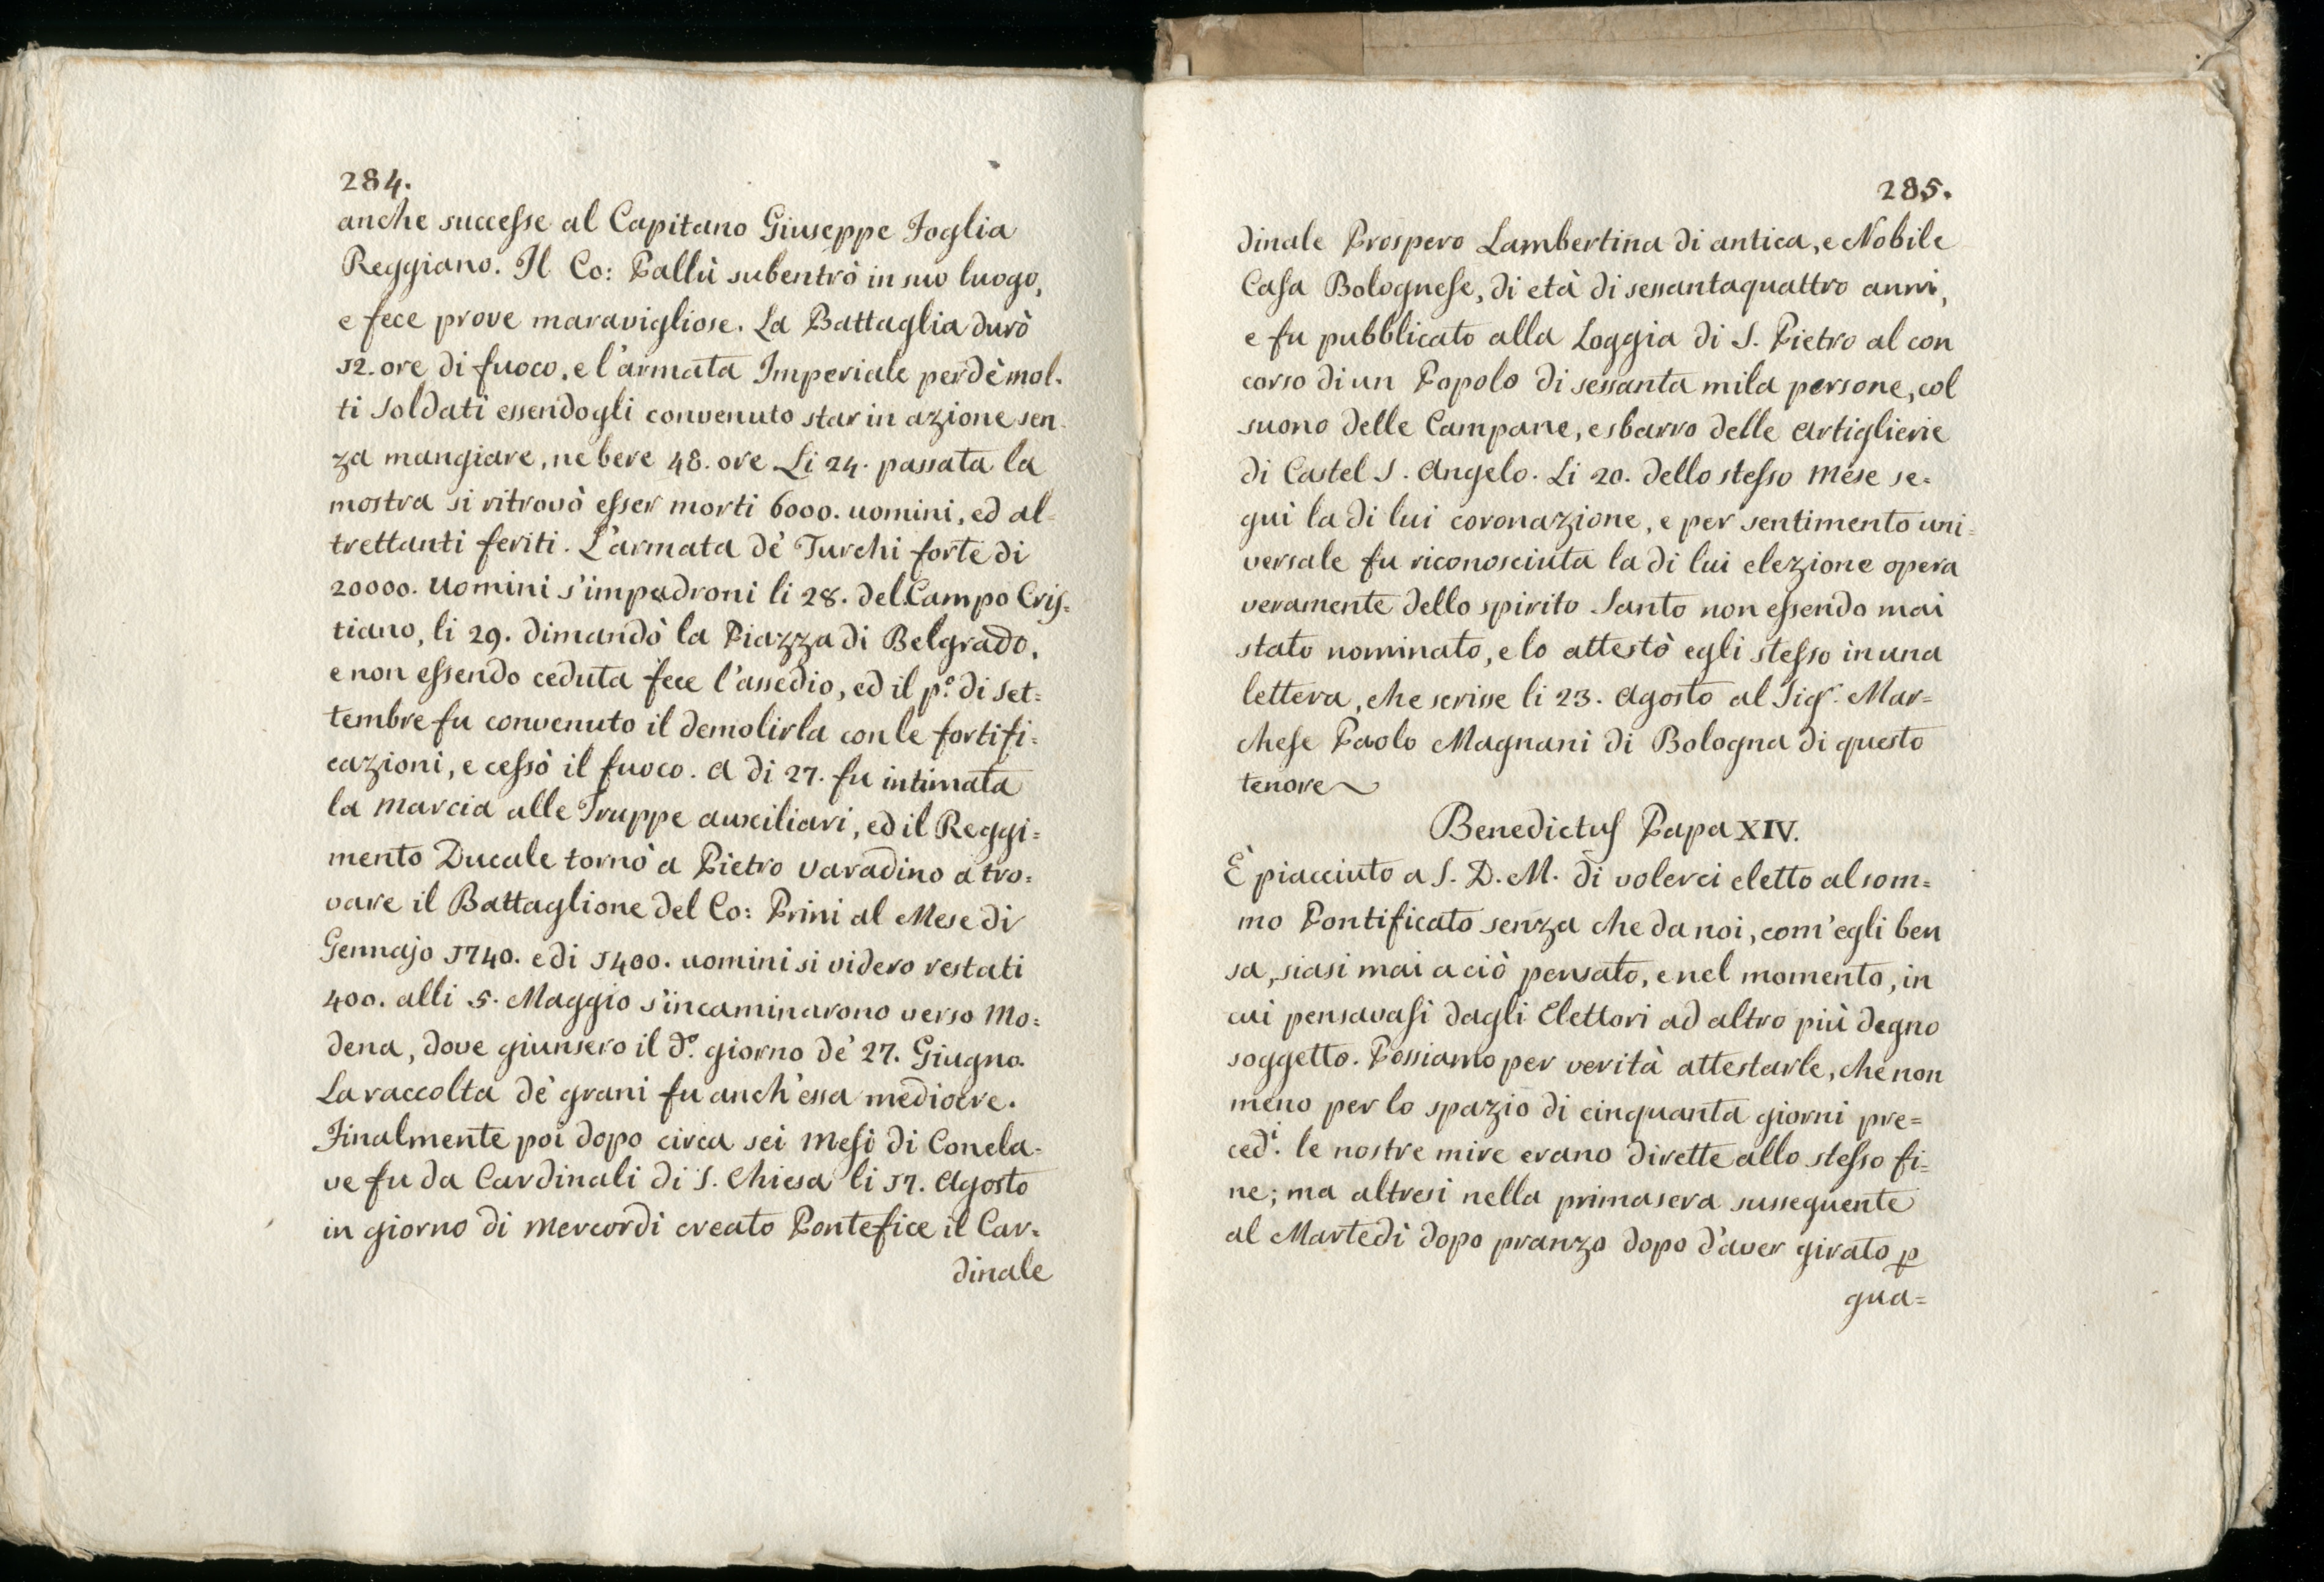 284.
anche successe al Capitano Giuseppe Foglia
Reggiano. Il Co: Pallù subentrò in suo luogo,
e fece prove maravigliose. La Battaglia durò
12. ore di fuoco, e l'armata Imperiale perdè mol-
ti Soldati essendogli convenuto star in azione sen-
za mangiare, ne bere 48. ore Li 24. passata la
mostra si ritrovò esser morti 6000. uomini, ed al-
trettanti feriti. L'armata dè Turchi forte di
20000. Uomini s'impadroni li 28. del Campo Cris=
tiano, li 29. dimandò la Piazza di Belgrado,
e non essendo ceduta fece l'assedio, ed il p.º di Set=
tembre fu convenuto il demolirla con le fortifi=
cazioni, e cessò il fuoco. A di 27. fu intimata
la Marcia alle Truppe auxiliari, ed il Reggi=
mento Ducale tornò a Pietro Varadino a tro=
vare il Battaglione del Co: Prini al Mese di
Gennajo 1740. e di 1400. uomini si videro restati
400. alli 5. Maggio s'incaminarono verso Mo=
dena, dove giunsero il d.º giorno dè 27. Giugno.
La raccolta dè grani fu anch'essa mediocre.
Finalmente poi dopo circa sei Mesi di Concla-
ve fu da Cardinali di S. Chiesa li 17. Agosto
in giorno di Mercordi creato Pontefice il Car=
dinale
285.
dinale Prospero Lambertina di antica, e Nobile
Casa Bolognese, di età di sessantaquattro anni,
e fu pubblicato alla Loggia di S. Pietro al con
corso di un Popolo di sessanta mila persone, col
suono delle Campane, e sbarro delle Artiglierie
di Castel S. Angelo. Li 20. dello stesso Mese se=
gui la di lui coronazione, e per sentimento uni=
versale fu riconosciuta la di lui elezione opera
veramente dello spirito Santo non essendo mai
stato nominato, e lo attestò egli stesso in una
lettera, che scrisse li 23. Agosto al Sig.r Mar=
chese Paolo Magnani di Bologna di questo
tenore~
Benedictus Papa XIV.
È piacciuto a S. D. M. di volerci eletto al som=
mo Pontificato senza che da noi, com'egli ben
sa, siasi mai a ciò pensato, e nel momento, in
cui pensavasi dagli Elettori ad altro più degno
soggetto. Possiamo per verità attestarle, che non
meno per lo spazio di cinquanta giorni pre=
ced.i le nostre mire erano dirette allo stesso fi=
ne; ma altresi nella primasera susseguente
al Martedi dopo pranzo dopo d'aver girato p
qua=